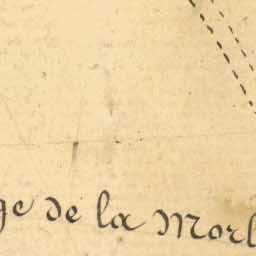 ge de la Morl